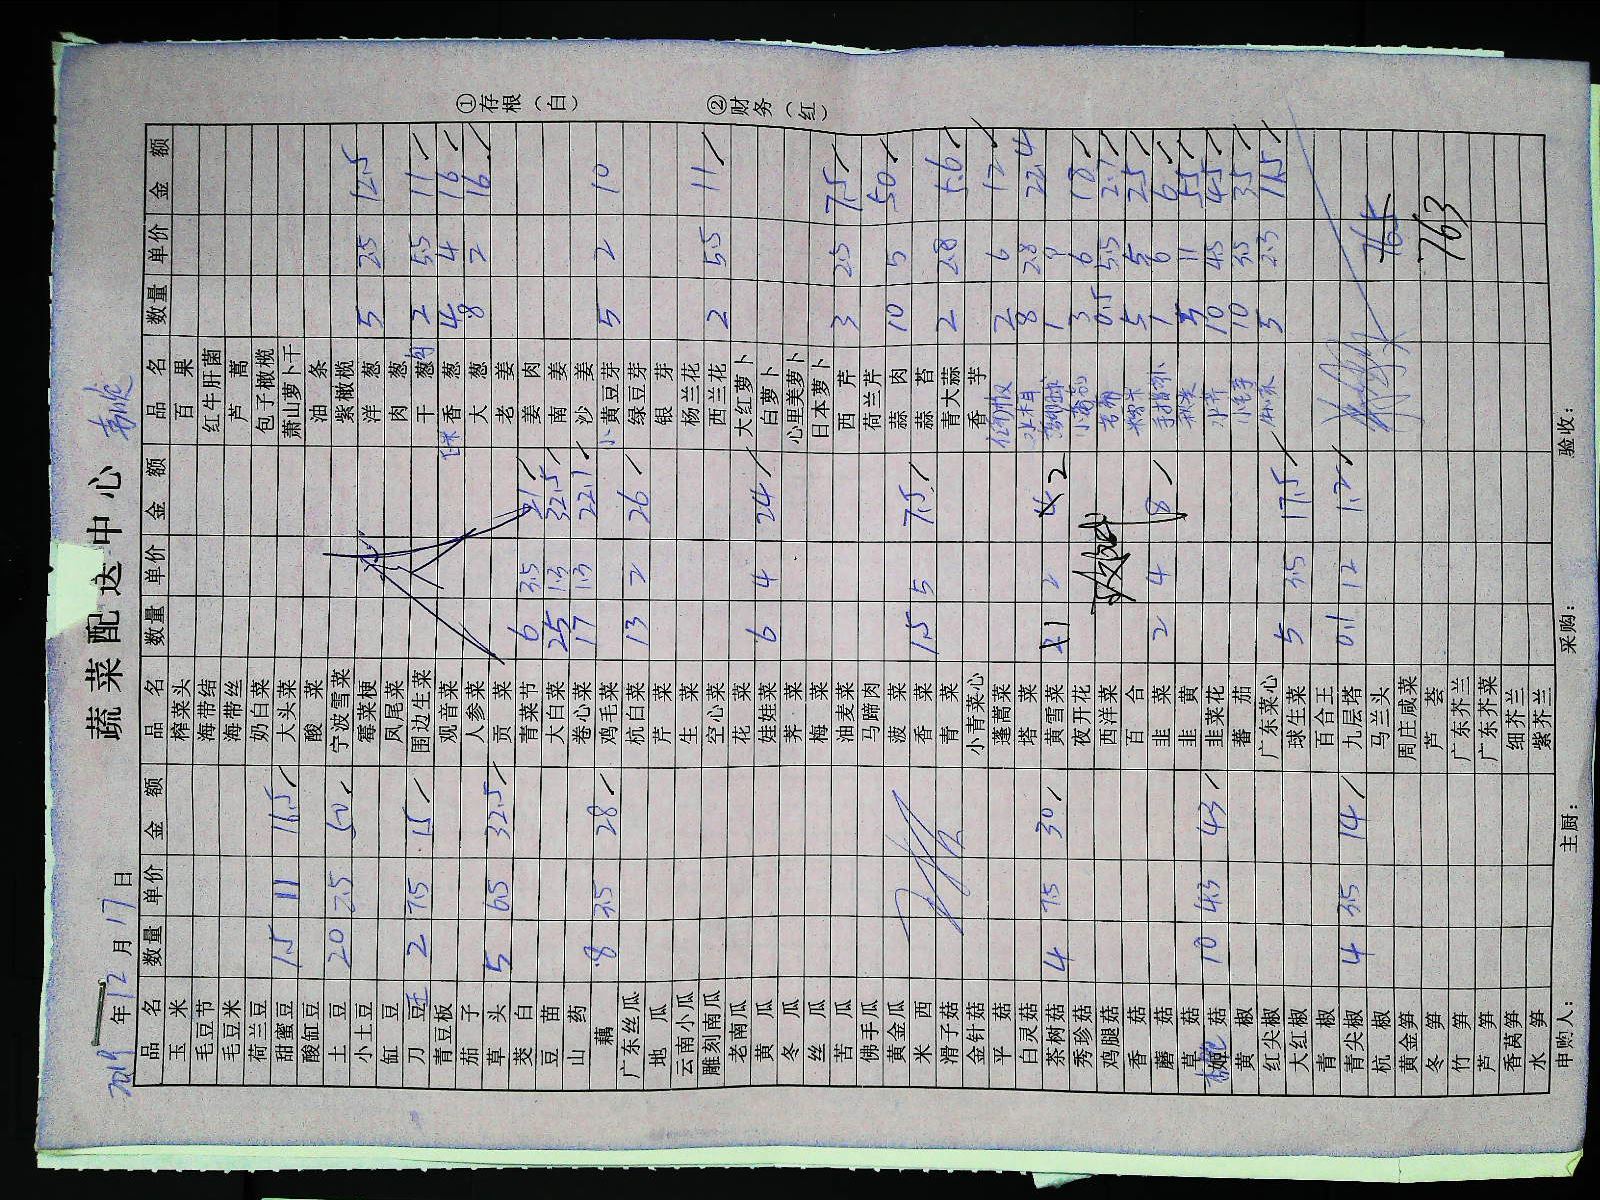 蔬菜配送中心
2019年12月17日
①存根（白） ②财务（红）
品名 数量 单价 金额 品名 数量 单价 金额 品名 数量 单价 金额
玉米 榨菜头 百果
毛豆节 海带结 红牛肝菌
毛豆米 海带丝 芦蒿
荷兰豆 奶白菜 包子橄榄
甜蜜豆 1.5 11 16.5 大头菜 萧山萝卜干
酸缸豆 酸菜 油条
土豆 20 2.5 50 宁波雪菜 紫橄榄
小土豆 霉菜梗 洋葱 5 2.5 12.5
缸豆 凤尾菜 肉葱
刀豆 2 7.5 15 围边生菜 干葱 2 5.5 11
青豆板 观音菜 香葱 4 4 16
茄子 人参菜 大葱 8 2 16
草头 5 6.5 32.5 贡菜 老姜
茭白 青菜节 6 3.5 21 姜肉
豆苗 大白菜 25 1.3 32.5 南姜
山药 卷心菜 17 1.3 22.1 沙姜
藕 8 3.5 28 鸡毛菜 小黄豆芽 5 2 10
广东丝瓜 杭白菜 13 2 26 绿豆芽
地瓜 芹菜 银芽
云南小瓜 生菜 杨兰花
雕刻南瓜 空心菜 西兰花 2 5.5 11
老南瓜 花菜 大红萝卜
黄瓜 娃娃菜 6 4 24 白萝卜
冬瓜 荠菜 心里美萝卜
丝瓜 梅菜 日本萝卜
苦瓜 油麦菜 西芹 3 2.5 7.5
佛手瓜 马蹄肉 荷兰芹
黄金瓜 菠菜 蒜肉 10 5 50
米西 香菜 1.5 5 7.5 蒜苔
滑子菇 青菜 青大蒜 2 2.8 5.6
金针菇 小青菜心 香芋
平菇 蓬蒿菜 2 6 12
白灵菇 塔菜 8 2.8 22.4
茶树菇 4 7.5 30 黄雪菜 1 2 2 1 9
秀珍菇 夜开花 3 6 18
鸡腿菇 西洋菜 0.5 5.5 2.7
香菇 百合 5 5 2.5
蘑菇 韭菜 2 4 8 1 6 6
草菇 韭黄 5 11 55
菇 10 4.3 43 韭菜花 10 4.5 45
黄椒 蕃茄 10 3.5 35
红尖椒 广东菜心 5 2.3 11.5
大红椒 球生菜 5 3.5 17.5
青椒 百合王
青尖椒 4 3.5 14 九层塔 0.1 12 1.2
杭椒 马兰头 765
黄金笋 周庄咸菜
冬笋 芦荟 763
竹笋 广东芥兰
芦笋 广东芥菜
香莴笋 细芥兰
水笋 紫芥兰
申购人： 主厨： 采购： 验收：